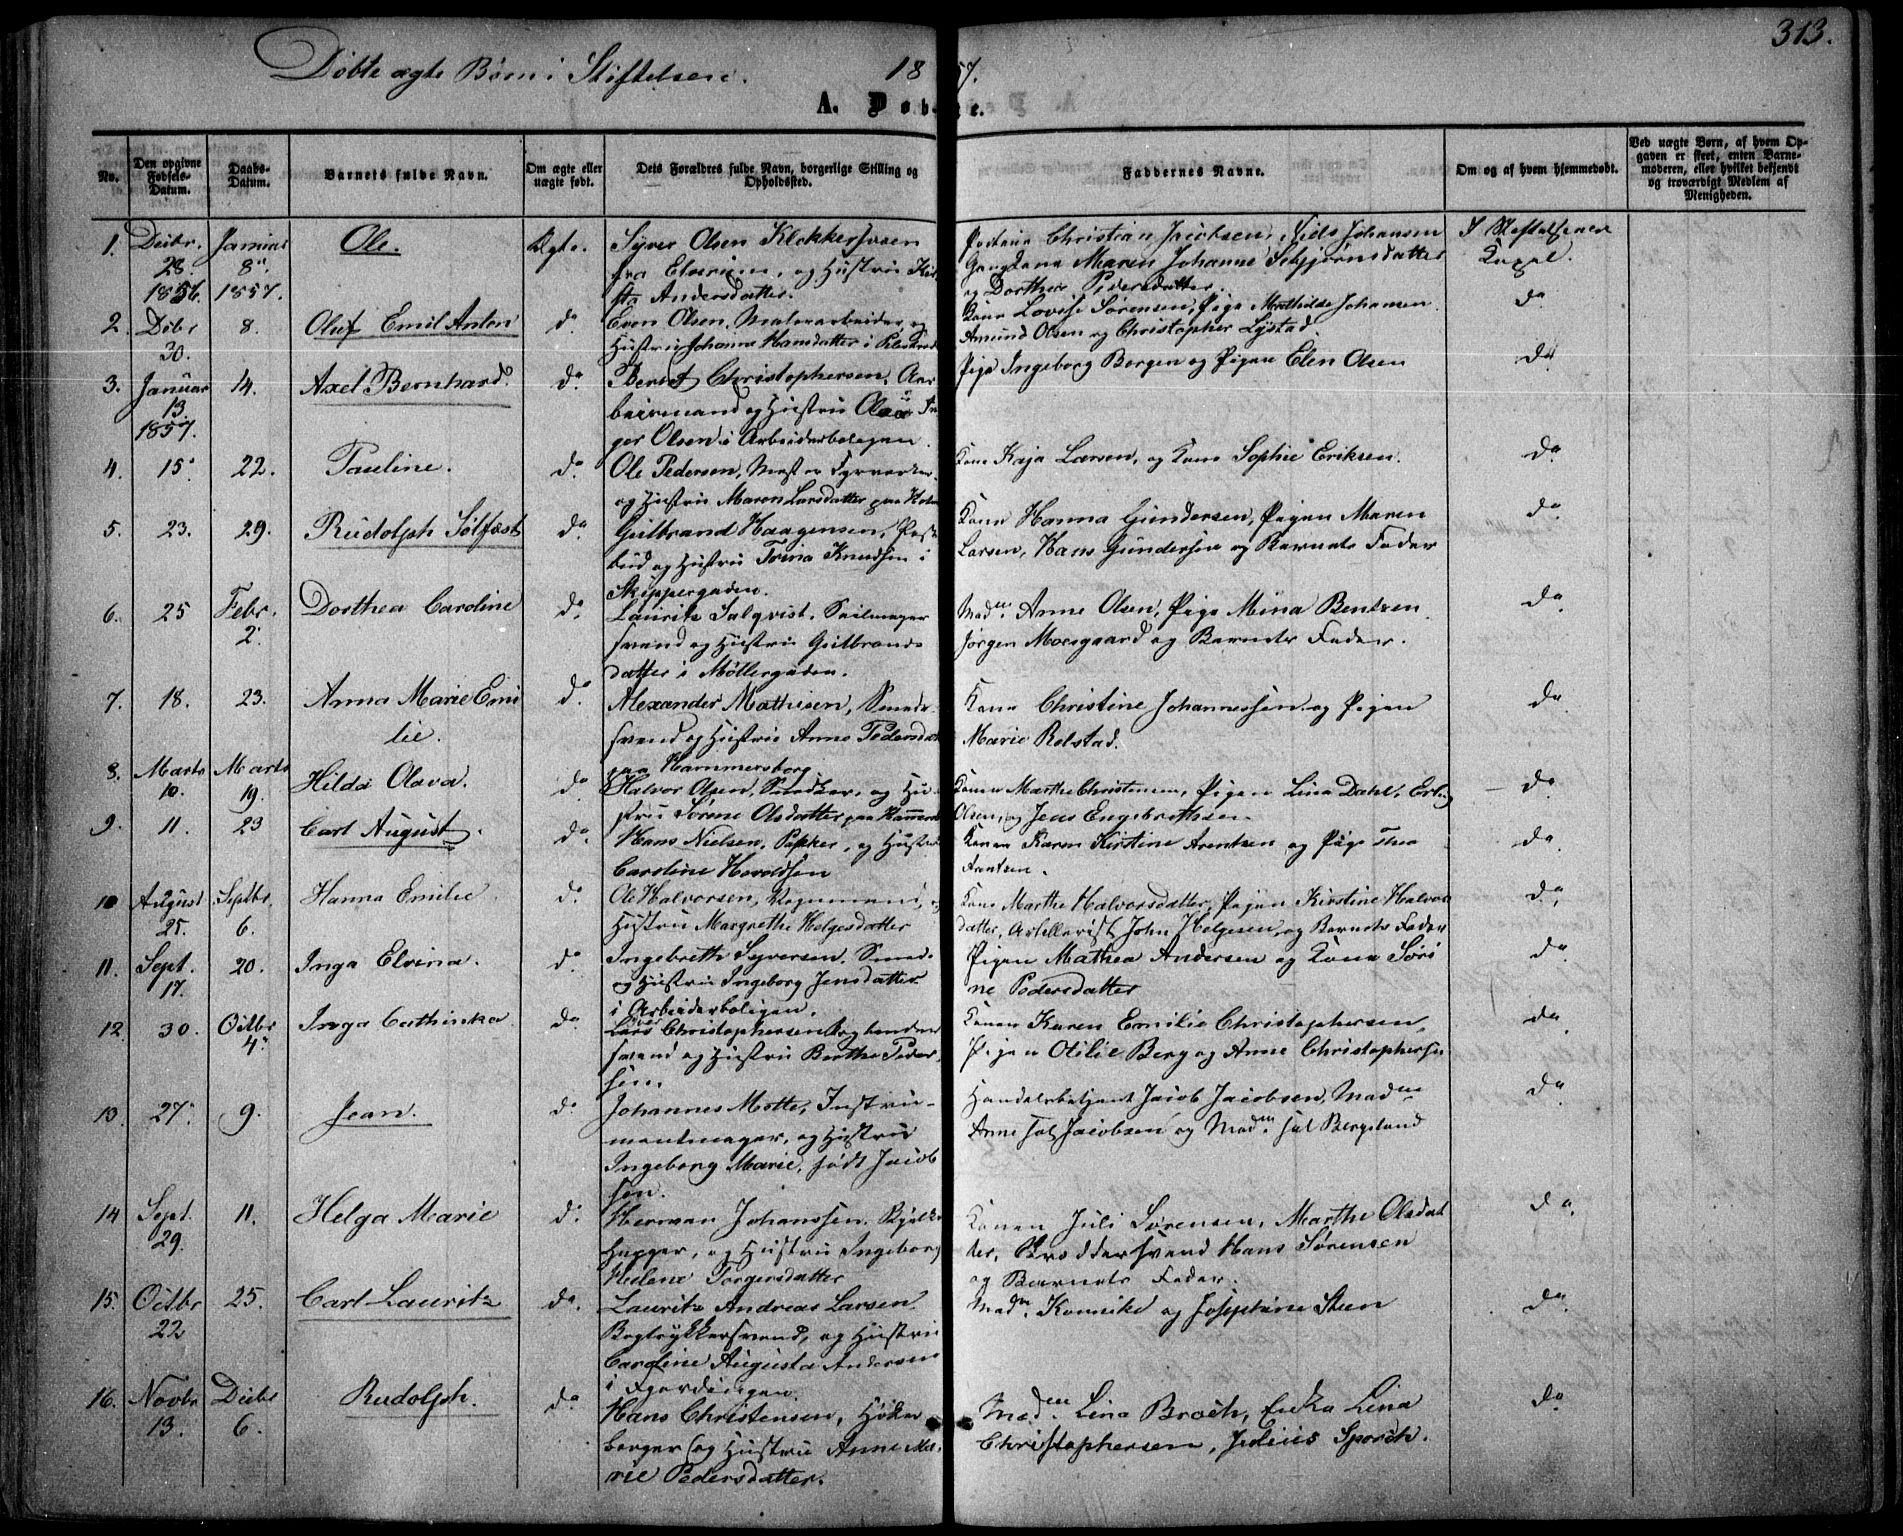 313.
Døbte ægte Børn i Stiftelsen. 18 57.
A. Døb- te.
No. Den opgivne Fødsels-Datum. Daabs-Datum. Barnets fulde Navn. Om ægte eller uægte født. Dets Forældres fulde Navn, borgerlige Stilling og Opholdssted. Faddernes Navne. Om og af hvem hjemmedøbt. Ved uægte Børn, af hvem Opgaven er skeet, enten Barnemoderen, eller hvilket bekjendt og troværdigt Medlem af Menigheden.
1. Decbr. Januar Ole. Ægte. Syver Olsen Klokkersveen Christian Jacobsen, Niels Johansen I Stiftelsens
28. 8. fra Elverum, og Hustru Maren Johanne Schjørnsdatter Capel.
1856. 1857. Andersdatter. og Dorthea Pedersdatter.
2. Dcbr 8. Oluf Emil Anton do. Even Olsen, og Kone Lovise Sørensen, Pige Mathilde Johansen do
30. Hustru Johanne Hansdatter i Amund Olsen og Christopher Lystad.
3. Januar 14. Axel Bernhard. do. Bernt Christophersen, Ar- Pige Ingeborg Bergen og Pigen Elen Olsen do
13. beidsmand og Hustru
1857. Olsen i Arbeiderboligen.
4. 15. 22. Pauline. do. Ole Pedersen, Kone Kaja Larsen, og Kone Sophie Eriksen. do
og Hustru Maren Larsdatter paa
5. 23. 29. Rudolph Sølfæst do Gulbrand Haagensen, Post- Kone Hanna Gundersen, Pigen Maren do
bud og Hustru Trina Knudsen i Larsen, Hans Gundersen og Barnets Fader
Skippergaden.
6. 25 Febr. Dorthea Caroline do. Lauritz Salqvist, Seilmager Madm. Anne Olsen, Pige Mina Bentzen do
2. svend og Hustru Gulbrands Jørgen Morsgaard og Barnets Fader.
datter i Møllergaden.
7. 18. 23. Anna Marie Emi do Alexander Mathisen, Smede- Kone Christine Johannessen og Pigen do
lie. svend og Hustru Anne Marie Rolstad.
paa Hammersborg
8. Marts Marts Hilda Olava. do Halvor Olsen, Snedker, og Hu- Konen Marthe Christensen, Pigen Lina Dahl, do
10. 19. stru Sørine Olsdatter paa Olsen, og Jens Engebrethsen.
9. 11. 23 Carl August. do. Hans Nielsen, og Hustru Konen Karen Kirstine Arentzen og Pige Thea do
Caroline Haroldsen Arentsen.
10 August Septbr. Hanna Emilie do. Ole Halvorsen, Vognmand, og Kone Marthe Halvorsdatter, Pigen Kirstine Halvors do
25. 6. Hustru Margrethe Helgesdatter datter, Artillerist John Helgesen, og Barnets Fader
11. Sept. 20. Inga Elvina. do. Ingebreth Syversen, Smed, Pigen Mathea Andersen og Kone Søri do
17. og Hustru Ingeborg Jensdatter ne Pedersdatter
i Arbeiderboligen.
12. 30. Octbr Inga Cathinka do. Christophersen Konen Karen Emilie Christophersen, do
4. svend og Hustru Berthe Peder- Pigen Otilie Berg og Anne Christophersen
sen.
13. 27. 9. Jean. do. Johannes Motte, Instru- Handelsbetjent Jacob Jacobsen, Madm. do
mentmager, og Hustru Anne Jacobsen og Madm. Bergsland
Ingeborg Marie, født Jacob
sen.
14 Sept. 11. Helga Marie do. Herman Johanssen, Konen Juli Sørensen, Marthe Olsdat do.
29. og Hustru Ingeborg ter, Hans Sørensen
Helene Torgersdatter og Barnets Fader.
15. Octbr 25. Carl Lauritz do. Lauritz Andreas Larsen Madm. og Josephine Steen do.
22 Bogtrykkersvend, og Hustru
Caroline Augusta Andersen
i Fjerdingen.
16. Novbr Decbr Rudolph. do Hans Christensen, Høker Madm. Lina Broch, Enke Lina do.
13. 6. borger og Hustru Anne Ma- Christophersen, Julius Sporch.
rie Pedersdatter.